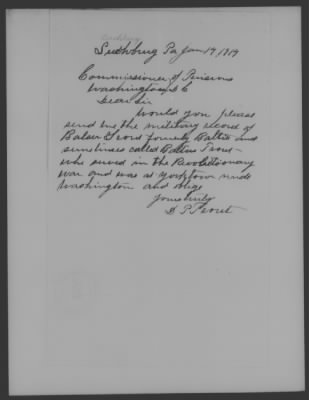 Pa Jan 19, 1919
Commissioner of Pensions
Washington D C
Dear Sir
Would you please
send me the military record of
Balser formerly Balter and
sometimes called
who served in the Revolutionary
War and was at Yorktown under
Washington and oblige
Yours truly